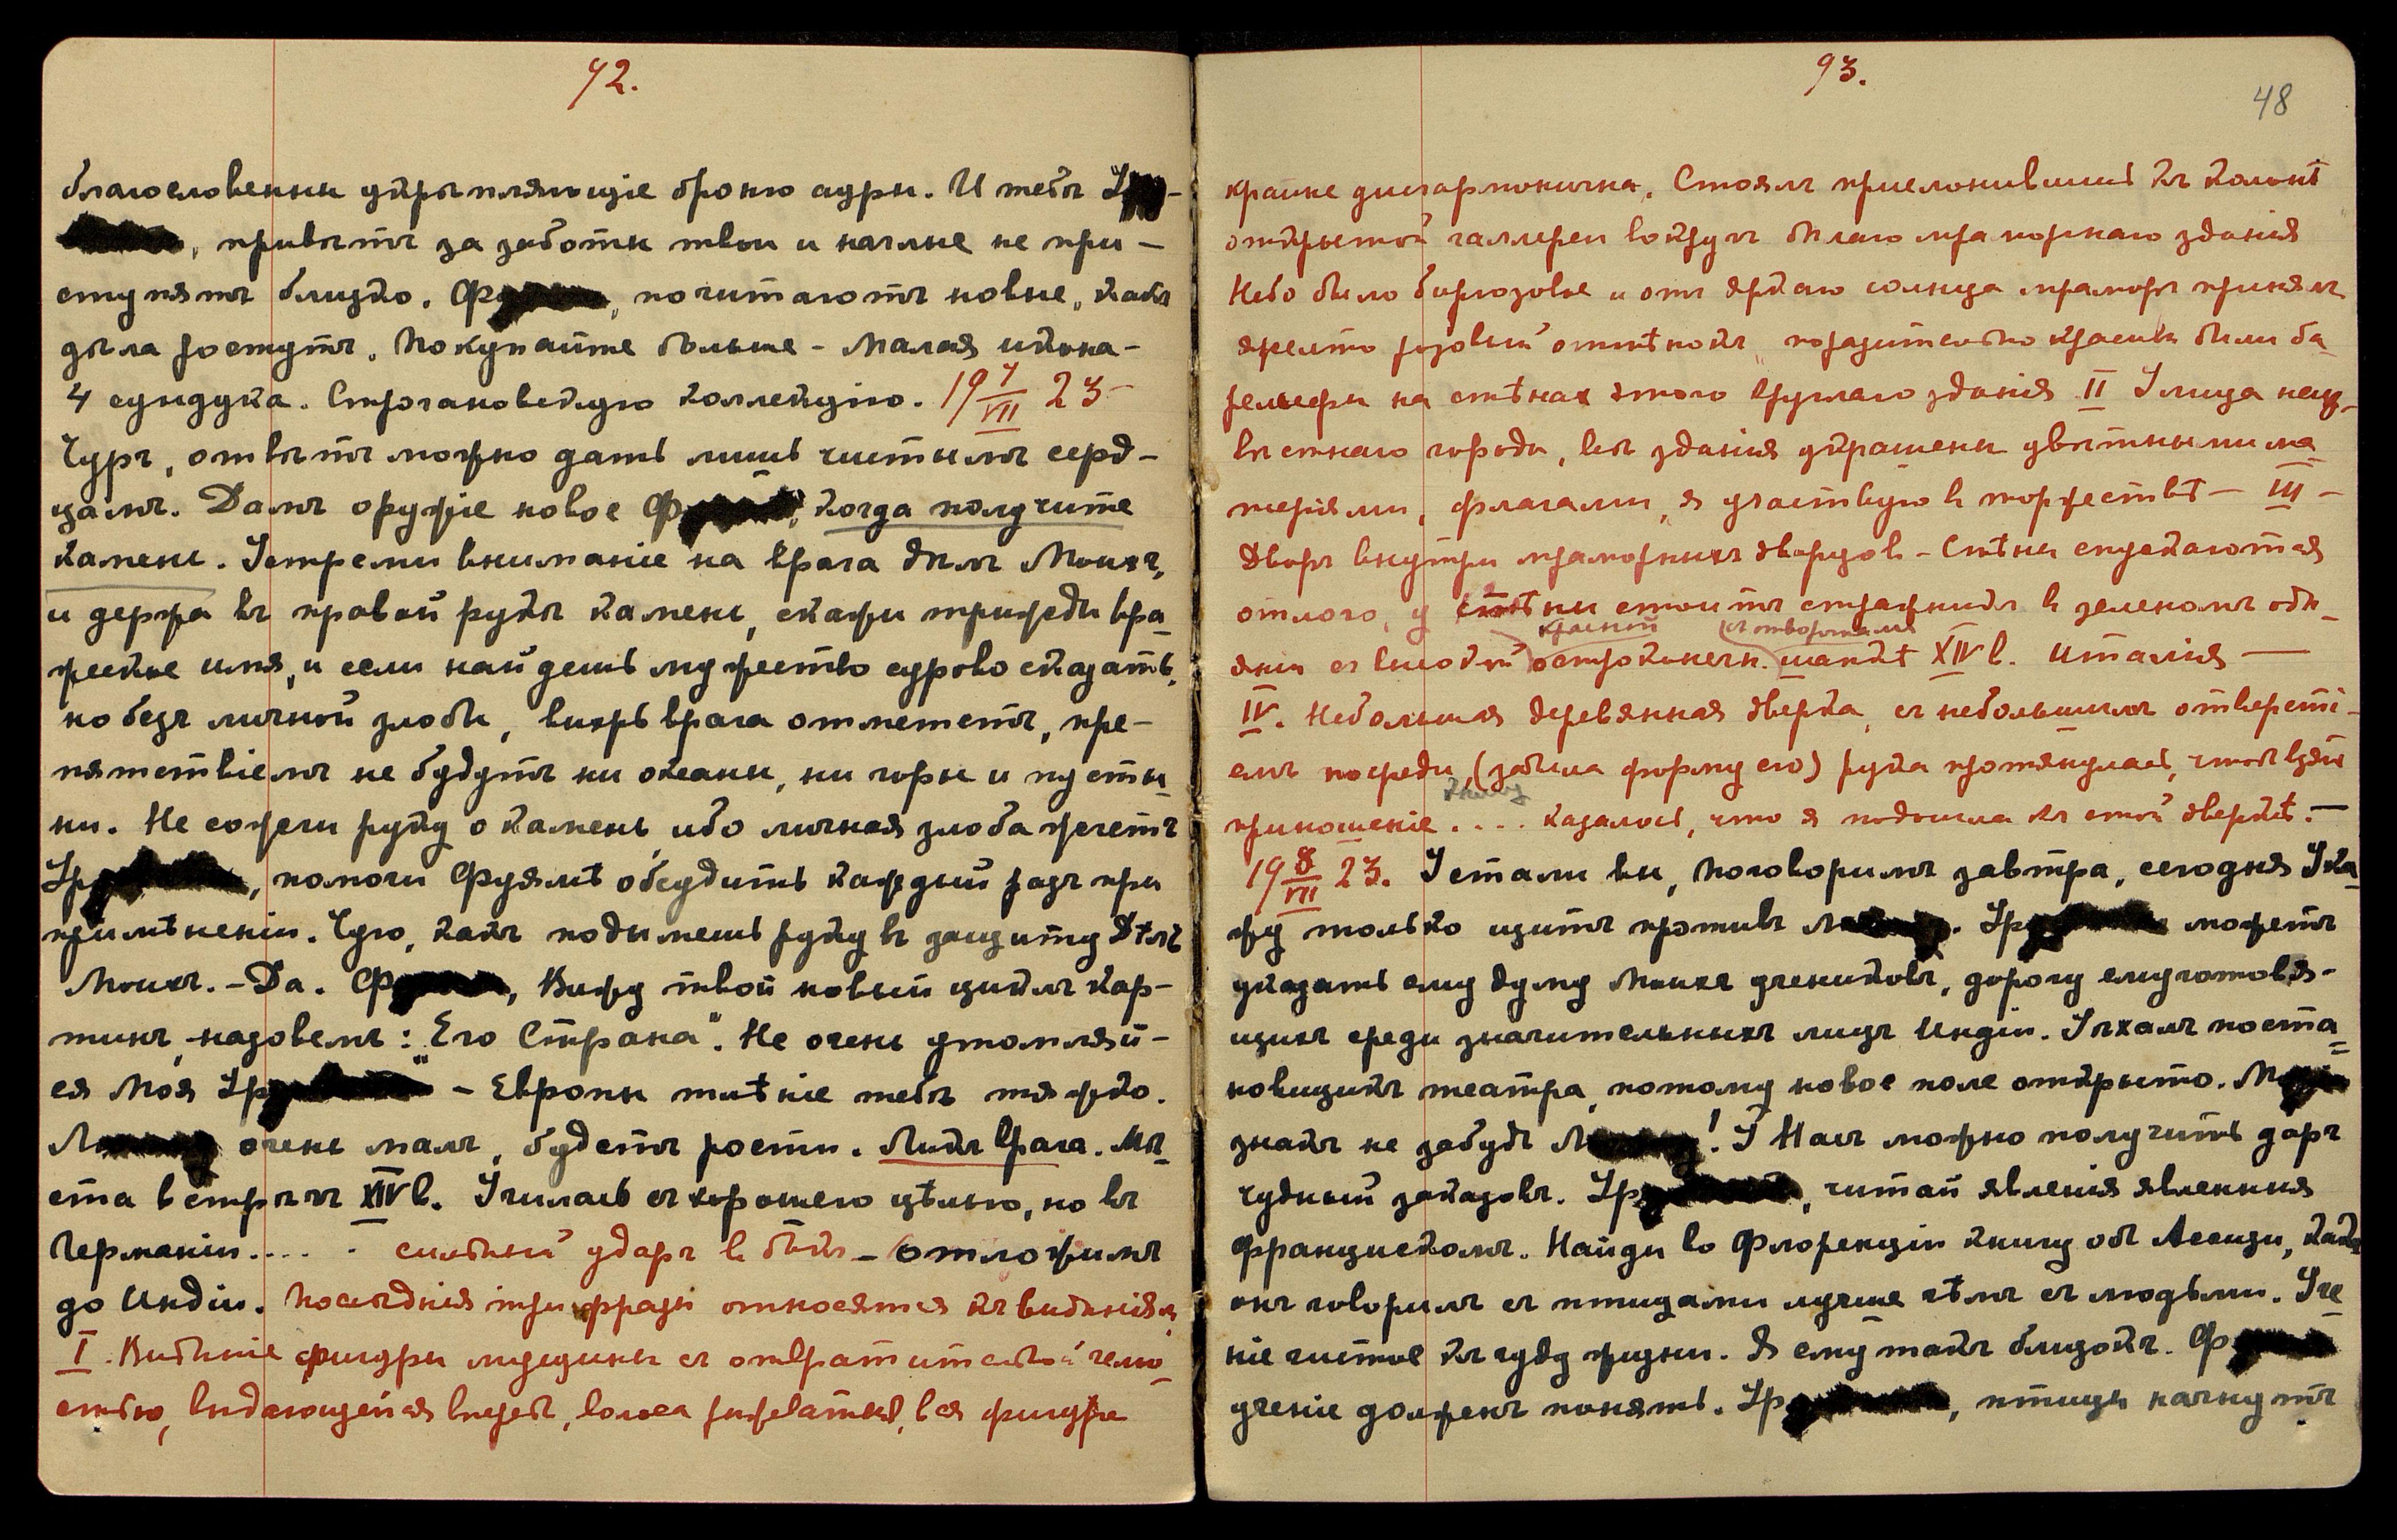 92.
благословенны укрѣпляющіе броню ауры. И тебѣ Ур
, привѣтъ за заботы твои и наглые не при-
ступятъ близко. Ф , почитаютъ новые, какъ
дѣла ростутъ. Покупайте больше - Малая икона -
4 сундука. Строгановскую коллекцію. 19 7/VII 23
Чуръ, отвѣтъ можно дать лишь чистымъ серд-
цамъ. Дамъ оружіе новое Ф , когда получите
камень. Устреми вниманіе на врага дѣлъ Моихъ,
и держа въ правой рукѣ камень, скажи трижды вра-
жеское имя, и если найдешь мужество сурово сказать,
но безъ личной злобы, вихрь врага отметётъ, пре-
пятствіемъ не будутъ ни океаны, ни горы и пусты-
ни. Не сожги руку о камень, ибо личная злоба жгетъ
Ур , помоги Фуямѣ обсудить каждый разъ при
примѣненіи. Чую, какъ подымешь руку въ защиту Дѣлъ
Моихъ. - Да. Ф , Вижу твой новый циклъ кар-
тинъ, назовемъ: „Его Страна". Не очень утомляй-
ся Моя Ур - Европы тлѣніе тебѣ тяжко.
Л очень малъ, будетъ рости. Ликъ врага. Мѣ-
ста встрѣчъ XIV в. Училась съ хорошею цѣлью, но въ
Германіи.... . сильный ударъ въ бокъ - отложимъ
до Индіи. Послѣднія три фразы относятся къ видѣніямъ
I. Видѣніе фигуры мущины съ отвратительной челю-
стью, выдающейся впередъ, волоса рыжеватые, вся фигура
93.
48
крайне дисгармонична. Стоялъ прислонившись къ колоннѣ
открытой галлереи вокругъ бѣлаго мраморнаго зданія
Небо было бирюзовое и отъ яркаго солнца мраморъ принялъ
желто розовый оттѣнокъ, поразительно красивы были ба-
рельефы на стѣнах этого круглаго зданія II Улица неиз-
вѣстнаго города, всѣ зданія украшены цвѣтными ма-
теріями, флагами, я участвую в торжествѣ - III -
Дворъ внутри мраморныхъ дворцов - Стѣны спускаются
отлого, у стѣны стоитъ стражникъ в зеленомъ одѣ-
красной съ отворотами
яніи съ высокой остроконечн. шапкѣ XIV в. Италія —
IV. Небольшая деревянная дверка, съ небольшимъ отверсті-
емъ посреди, (забыла форму его) рука протянулась, чтоб взять
книгу
приношеніе .... казалось, что я подошла къ этой дверкѣ. —
19 8/VII 23. Устали вы, поговоримъ завтра, сегодня Ука-
жу только щитъ противъ Л . Ур можетъ
указать ему думу Моихъ учениковъ, дорогу ему готовя-
щихъ среди значительныхъ лицъ Индіи. Уѣхалъ поста-
новщикъ театра, потому новое поле открыто. М
знакъ не забудь Л ! У Насъ можно получить даръ
чудный заказовъ. Ур , читай явленія явленныя
Францискомъ. Найди во Флоренціи книгу объ Ассизи, какъ
онъ говорилъ съ птицами лучше чѣмъ съ людьми. Уче-
ніе чистое къ чуду жизни. Я ему такъ близокъ. Ф
ученіе долженъ понять. Ур , птицы начнутъ